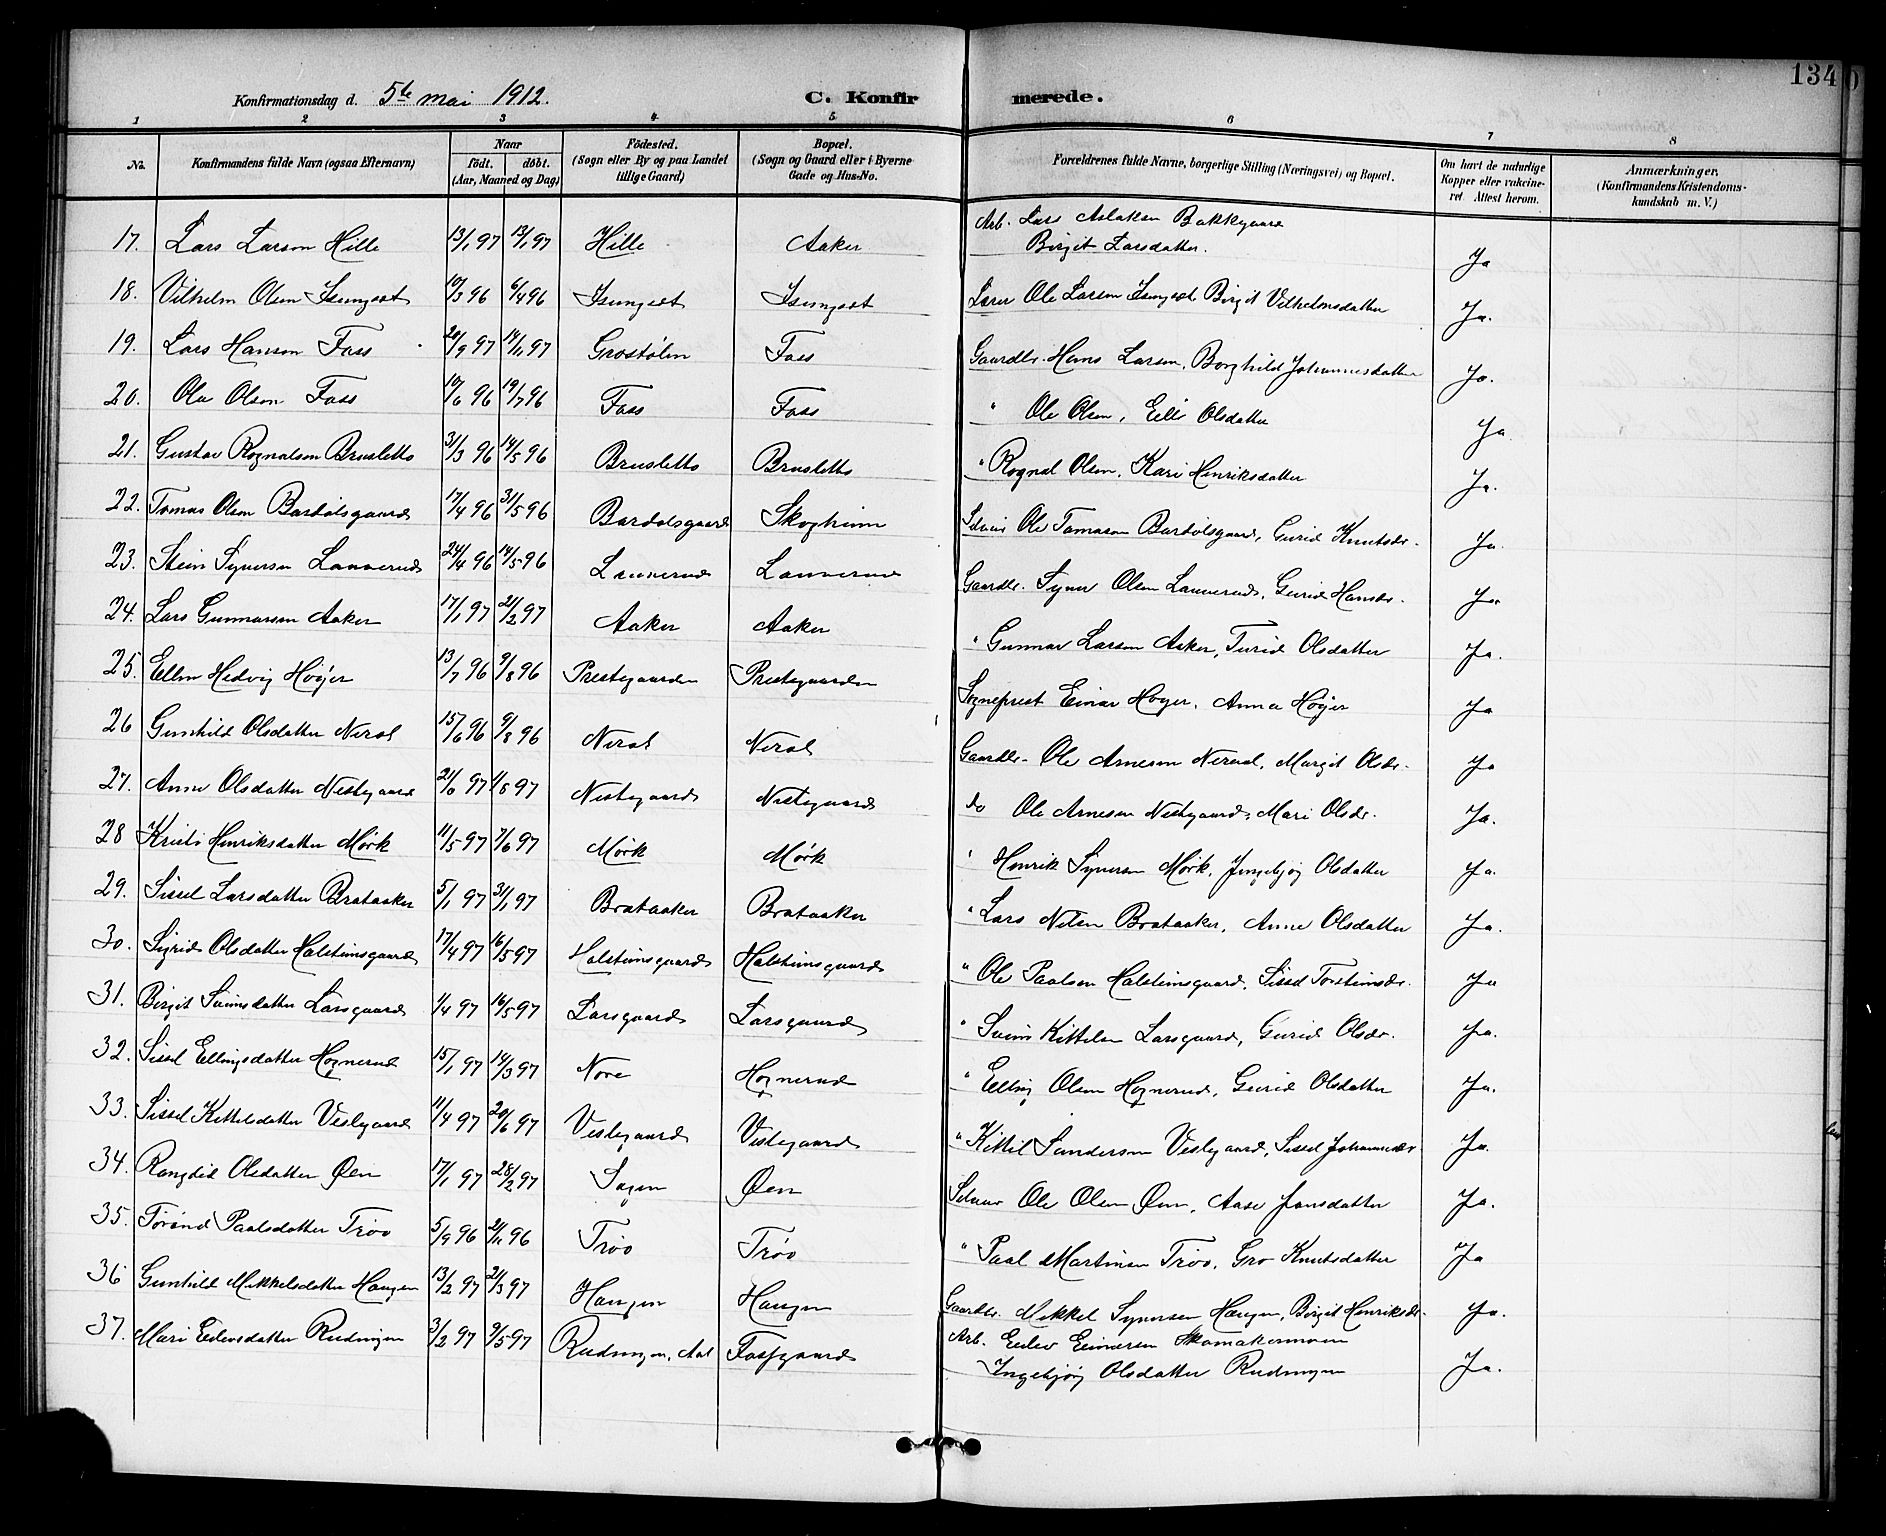 134
Konfirmationsdag d. 5te mai 1912. C. Konfirmerede.
1 2 3 4 5 6 7 8
No. Konfirmandens fulde Navn (ogsaa Efternavn) Naar födt. döbt. (Aar, Maaned og Dag) Födested. (Sogn eller By og paa Landet tillige Gaard) Bopæl. (Sogn og Gaard eller i Byerne Gade og Hus-No. Forældrenes fulde Navne, borgerlige Stilling (Næringsvei) og Bopæl. Om havt de naturlige Kopper eller vakcineret. Attest herom. Anmærkninger. (Konfirmandens Kristendomskundskab m. V.)
17. Lars Larsen Hille 13/1 97 13/1 97 Hille Aaker Arb. Lars Aslaksen Bakkegaard
Birgit Larsdatter. Ja
18. Vilhelm Olsen 10/3 96 6/4 96 Ole Larsen Birgit Vilhelmsdatter Ja.
19. Lars Hansen Foss 20/9 97 14/11 97 Grostølen Foss Gaardbr. Hans Larsen, Borghild Johannesdatter Ja.
20. Ole Olsen Foss 10/6 96 19/7 96 Foss Foss " Ole Olsen, Eili Olsdatter Ja.
21. Gustav Rognalsen Brusletto 31/3 96 14/5 96 Brusletto Brusletto " Rognal Olsen, Kari Henriksdatter Ja.
22. Tomas Olsen Bardolsgaard 17/4 96 31/5 96 Bardolsgaard Skogheim Ole Tomasen Bardolsgaard, Gurid Knutsdr. Ja.
23. Stein Synersen Lauverud 24/4 96 14/5 96 Lauverud Lauverud Gaardbr. Syver Olsen Lauverud, Gurid Hansdr. Ja
24. Lars Gunnarsen Aaker 17/1 97 21/2 97 Aaker Aaker " Gunnar Larsen Aaker, Turid Olsdatter Ja.
25. Ellen Hedvig Høyer 13/7 96 9/8 96 Prestegaarden Prestegaarden Sogneprest Einar Høyer, Anna Høyer Ja
26 Gunhild Olsdatter Neral 15/6 96 9/8 96 Neral Neral Gaardbr. Ole Arnesen Neraal, Margit Olsdr. Ja
27. Anne Olsdatter Nestegaard 97 97 Nestegaard Nestegaard do Ole Arnesen Nestegaard, Mari Olsdr. Ja.
28 Kristi Henriksdatter Mørk 11/5 97 7/6 97 Mørk Mørk " Henrik Synersen Mørk, Jngebjøg Olsdatter Ja.
29. Sissel Larsdatter Brataaker 5/1 97 31/1 97 Brataaker Brataaker " Lars Nilsen Brataaker, Anne Olsdatter Ja.
30. Sigrid Olsdatter Halsteinsgaard 17/4 97 16/5 97 Halsteinsgaard Halsteinsgaard " Ole Paalsen Halsteinsgaard, Sissel Torsteinsdr. Ja
31. Birgit Sveinsdatter Larsgaard 1/4 97 16/5 97 Larsgaard Larsgaard " Svein Kittelsen Larsgaard, Gurid Olsdr. Ja.
32. Sissel Ellingsdatter Hognerud 15/1 97 14/3 97 Nore Hognerud " Elling Olsen Hognerud, Gurid Olsdatter Ja.
33. Sissel Kittelsdatter Veslegaard 11/4 97 20/6 97 Veslegaard Veslegaard " Kittil Sandersen Veslegaard, Sissel Johannesdr. Ja.
34. Rangdid Olsdatter Øen 17/1 97 28/2 97 Sagen Øen Ole Olsen Øen, Aase Jonsdatter Ja.
35. Tørand Paalsdatter Trøo 5/9 96 96 Trøo Trøo " Paal Martinsen Trøo, Gro Knutsdatter Ja
36 Gunhild Mikkelsdatter Haugen 13/2 97 21/3 97 Haugen Haugen Gaardbr. Mikkel Synersen Haugen, Birgit Henriksdr. Ja.
37. Mari Eilevsdatter Rudningen 3/2 97 9/5 97 Rudningen, Aal Fossgaard Arb. Eilev Skomakermoen
Ingebjøg Olsdatter Rudningen Ja.